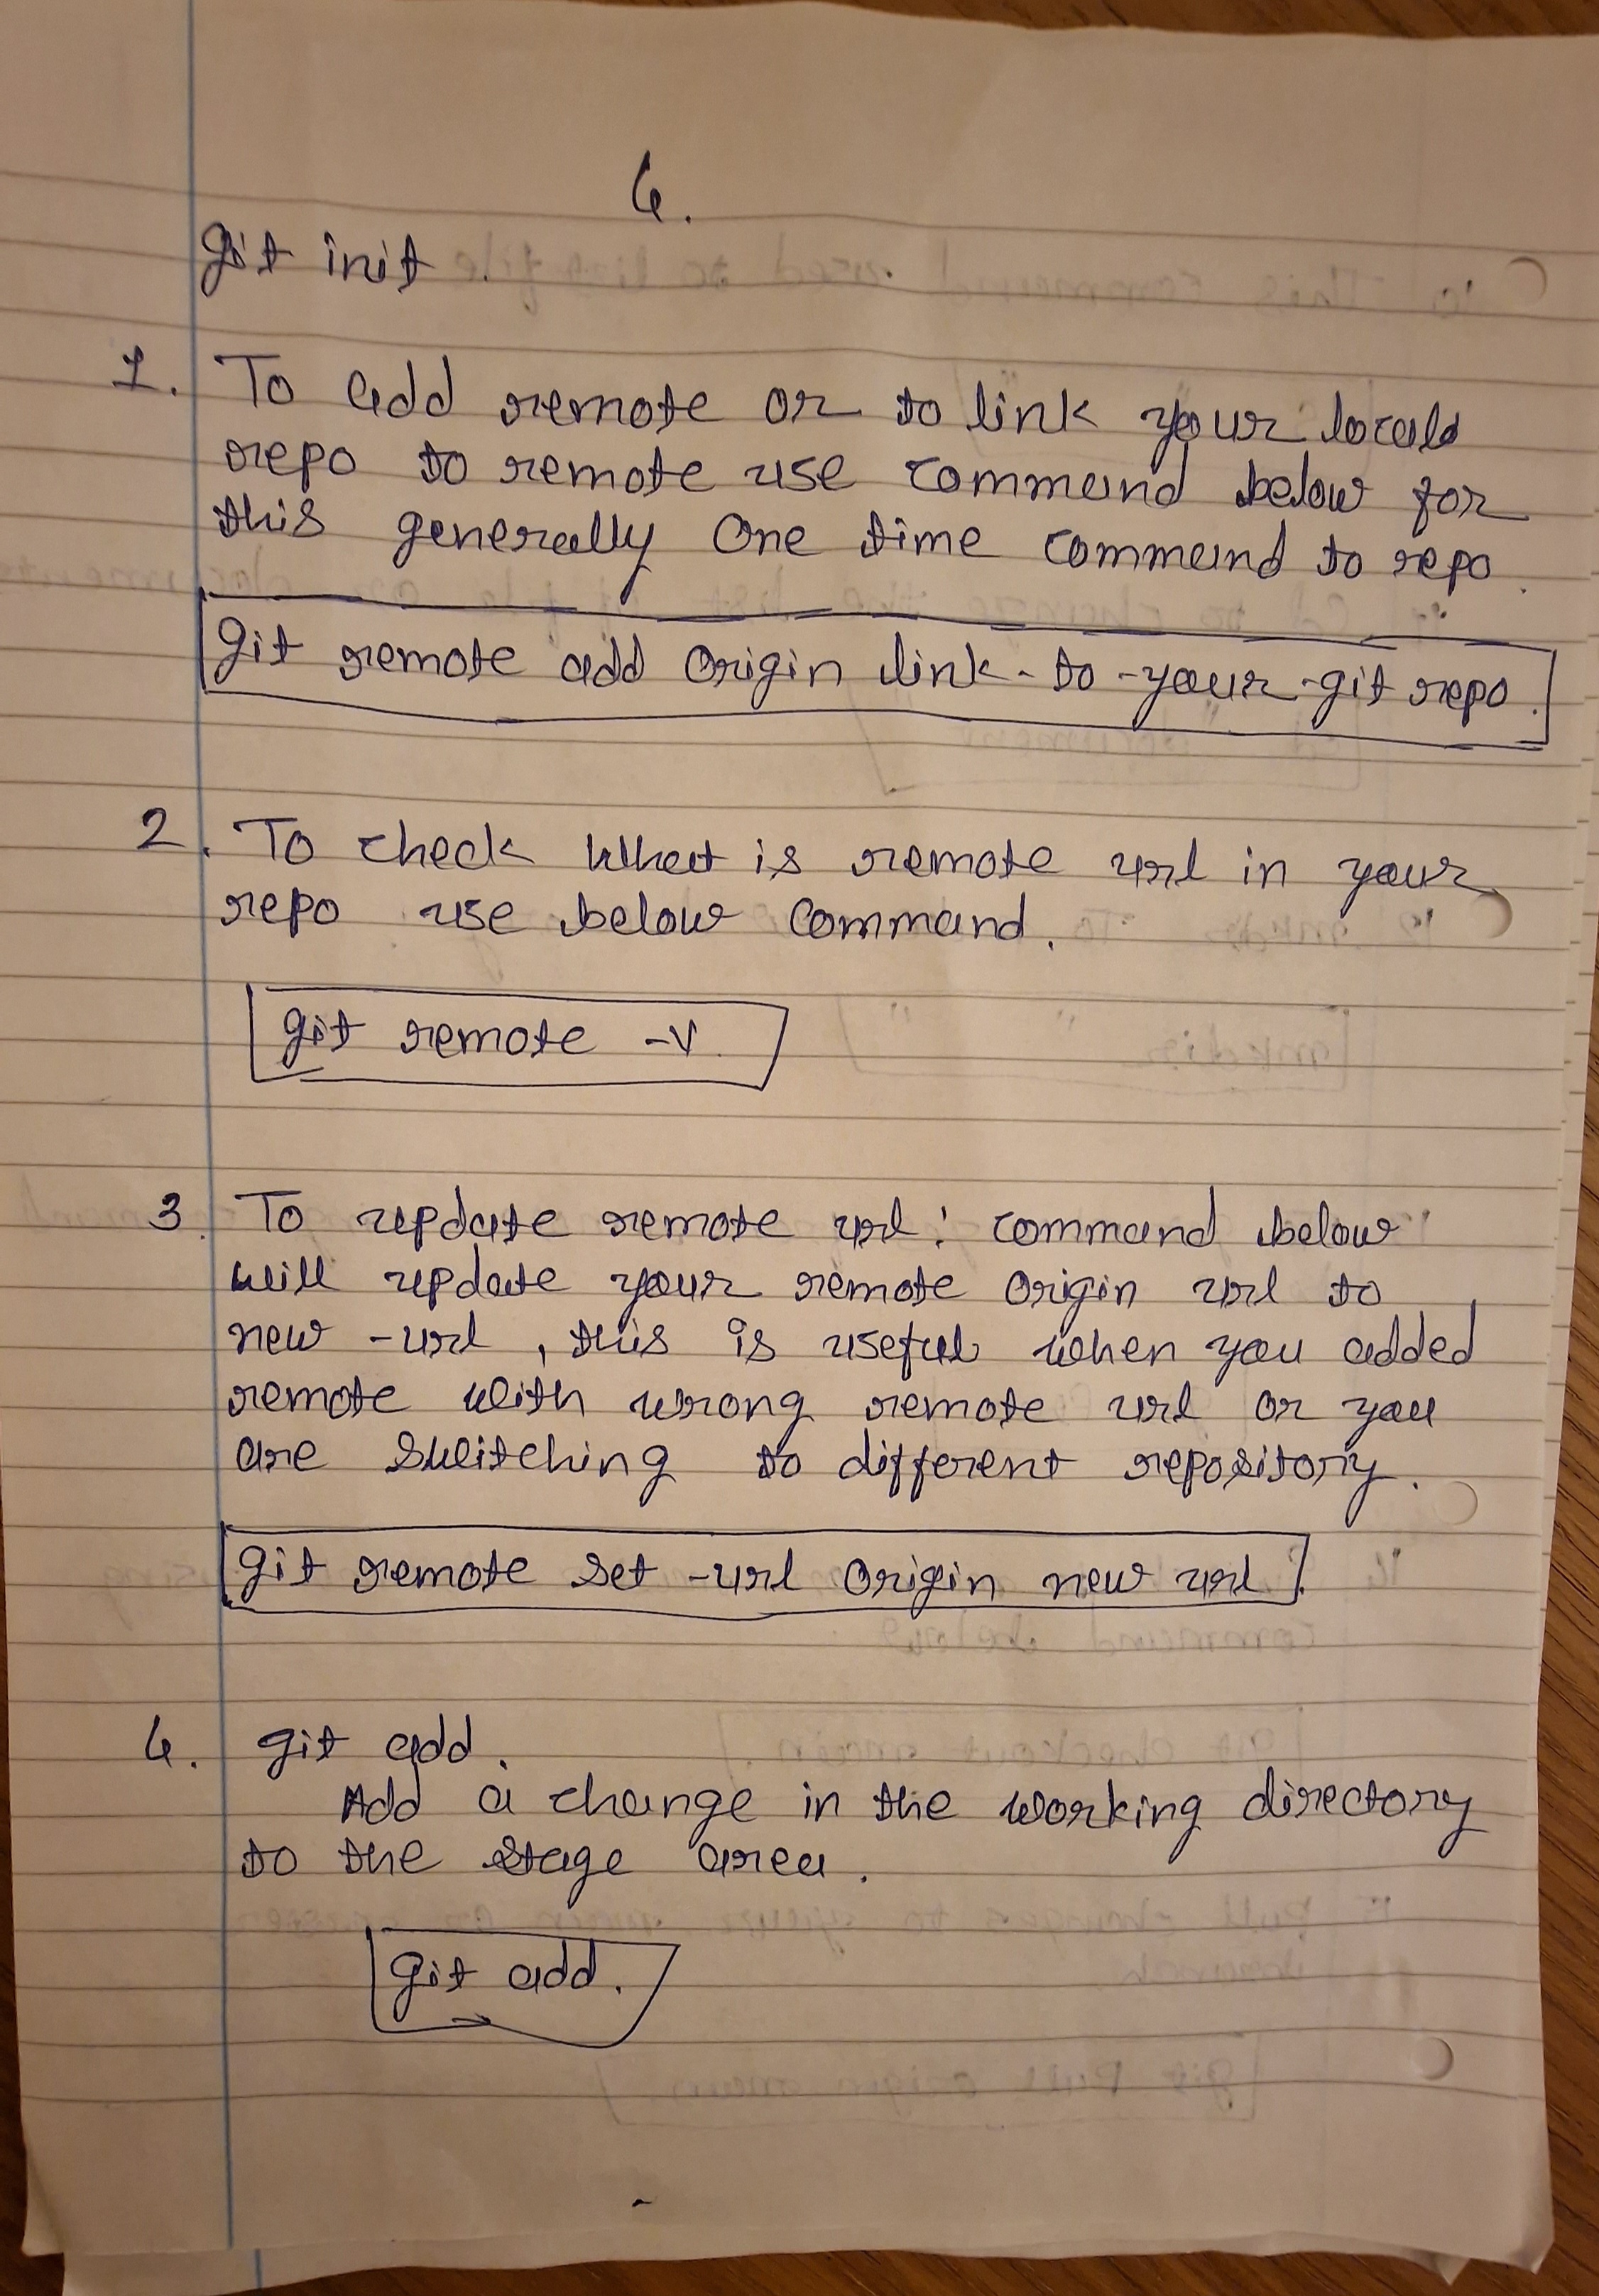 4.
git init
1. To add remote or to link your local
repo to remote use command below for
this generally one time command to repo.
git remote add origin link-to-your-git repo.
2. To check what is remote url in your
repo use below command.
git remote -v
3. To update remote url: command below
will update your remote origin url to
new-url, this is useful when you added
remote with wrong remote url or you
are switching to different repository.
git remote set-url origin new url.
4. git add.
Add a change in the working directory
to the stage area.
git add.